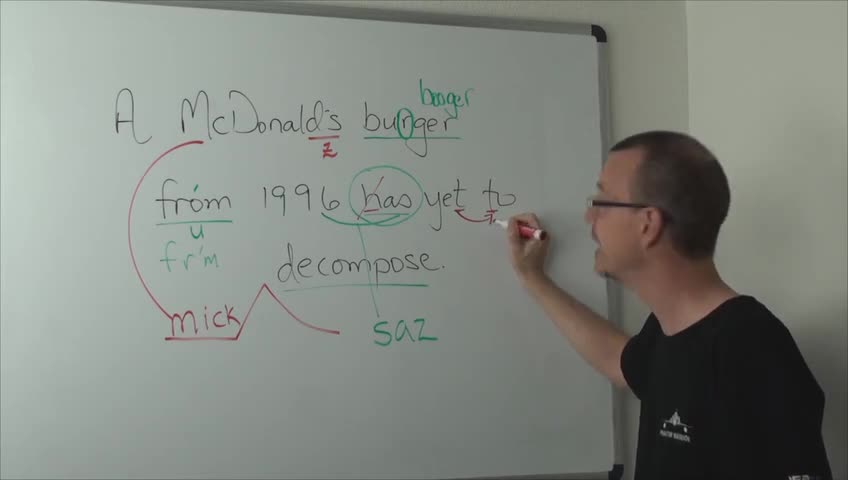 booger
A McDonald's burger
z
from 1996 has yet to
u
fr'm decompose.
mick
saz